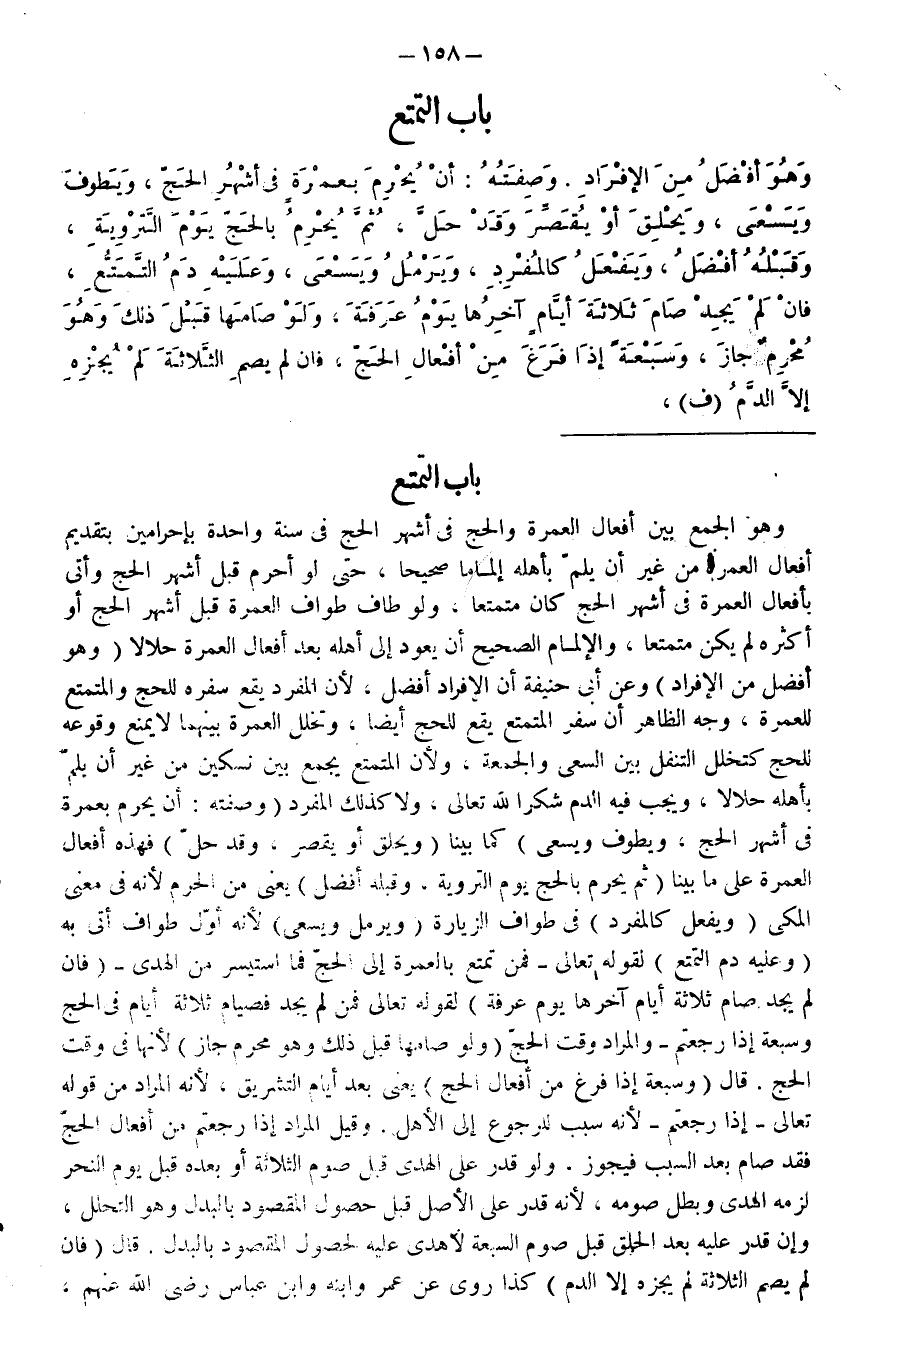 — ١٥٨ —
باب التمتع
وَهُوَ أفْضَلُ مِنَ الإفْرَادِ . وَصِفَتُهُ : أنْ يُحْرِمَ بِعُمْرَةٍ فى أشْهُرِ الحَجّ ، وَيَطوفَ
وَيَسْعَى ، وَيَحْلِقَ أوْ يُقَصِّرَ وَقَدْ حَلَّ ، ثُمَّ يُحْرِمُ بالحَجّ يَوْمَ التَّرْوِيَةِ ،
وَقَبْلَهُ أفْضَلُ ، وَيَفْعَلُ كالمُفْرِدِ ، وَيَرْمُلُ وَيَسْعَى ، وَعَلَيْهِ دَمُ التَّمَتُّعِ ،
فانْ لَمْ يَجِدْ صَامَ ثَلاثَةَ أيَّامٍ آخِرُها يَوْمُ عَرَفَةَ ، وَلَوْ صَامَها قَبْلَ ذلكَ وَهُوَ
مُحْرِمٌ جازَ ، وَسَبْعَةً إذَا فَرَغَ مِنْ أفْعالِ الحَجّ ، فان لم يصمِ الثَّلاثَةَ لَمْ يُجْزِهِ
إلاَّ الدَّمُ (ف) ،
باب التمتع
وهو الجمع بين أفعال العمرة والحج فى أشهر الحج فى سنة واحدة بإحرامين بتقديم
أفعال العمرة من غير أن يلمّ بأهله إلماما صحيحا ، حتى لو أحرم قبل أشهر الحج وأتى
بأفعال العمرة فى أشهر الحج كان متمتعا ، ولو طاف طواف العمرة قبل أشهر الحج أو
أكثره لم يكن متمتعا ، والإلمام الصحيح أن يعود إلى أهله بعد أفعال العمرة حلالا ( وهو
أفضل من الإفراد ) وعن أبى حنيفة أن الإفراد أفضل ، لأن المفرد يقع سفره للحج والمتمتع
للعمرة ، وجه الظاهر أن سفر المتمتع يقع للحج أيضا ، وتخلل العمرة بينهما لايمنع وقوعه
للحج كتخلل التنفل بين السعى والجمعة ، ولأن المتمتع يجمع بين نسكين من غير أن يلمّ
بأهله حلالا ، ويجب فيه الدم شكرا لله تعالى ، ولا كذلك المفرد ( وصفته : أن يحرم بعمرة
فى أشهر الحج ، ويطوف ويسعى ) كما بينا ( ويحلق أو يقصر ، وقد حلّ ) فهذه أفعال
العمرة على ما بينا ( ثم يحرم بالحج يوم التروية . وقبله أفضل ) يعنى من الحرم لأنه فى معنى
المكى ( ويفعل كالمفرد ) فى طواف الزيارة ( ويرمل ويسعى) لأنه أوّل طواف أتى به
( وعليه دم التمتع ) لقوله تعالى - فمن تمتع بالعمرة إلى الحجّ فما استيسر من الهدى - ( فان
لم يجد صام ثلاثة أيام آخرها يوم عرفة ) لقوله تعالى فمن لم يجد فصيام ثلاثة أيام فى الحج
وسبعة إذا رجعتم - والمراد وقت الحجّ ( ولو صامها قبل ذلك وهو محرم جاز ) لأنها فى وقت
الحج . قال ( وسبعة إذا فرغ من أفعال الحج ) يعنى بعد أيام التشريق ، لأنه المراد من قوله
تعالى - إذا رجعتم - لأنه سبب للرجوع إلى الأهل . وقيل المراد إذا رجعتم من أفعال الحجّ
فقد صام بعد السبب فيجوز . ولو قدر على الهدى قبل صوم الثلاثة أو بعده قبل يوم النحر
لزمه الهدى وبطل صومه ، لأنه قدر على الأصل قبل حصول المقصود بالبدل وهو التحلل ،
وإن قدر عليه بعد الحلق قبل صوم السبعة لاهدى عليه لحصول المقصود بالبدل . قال ( فان
لم يصم الثلاثة لم يجزه إلا الدم ) كذا روى عن عمر وابنه وابن عباس رضى الله عنهم ،